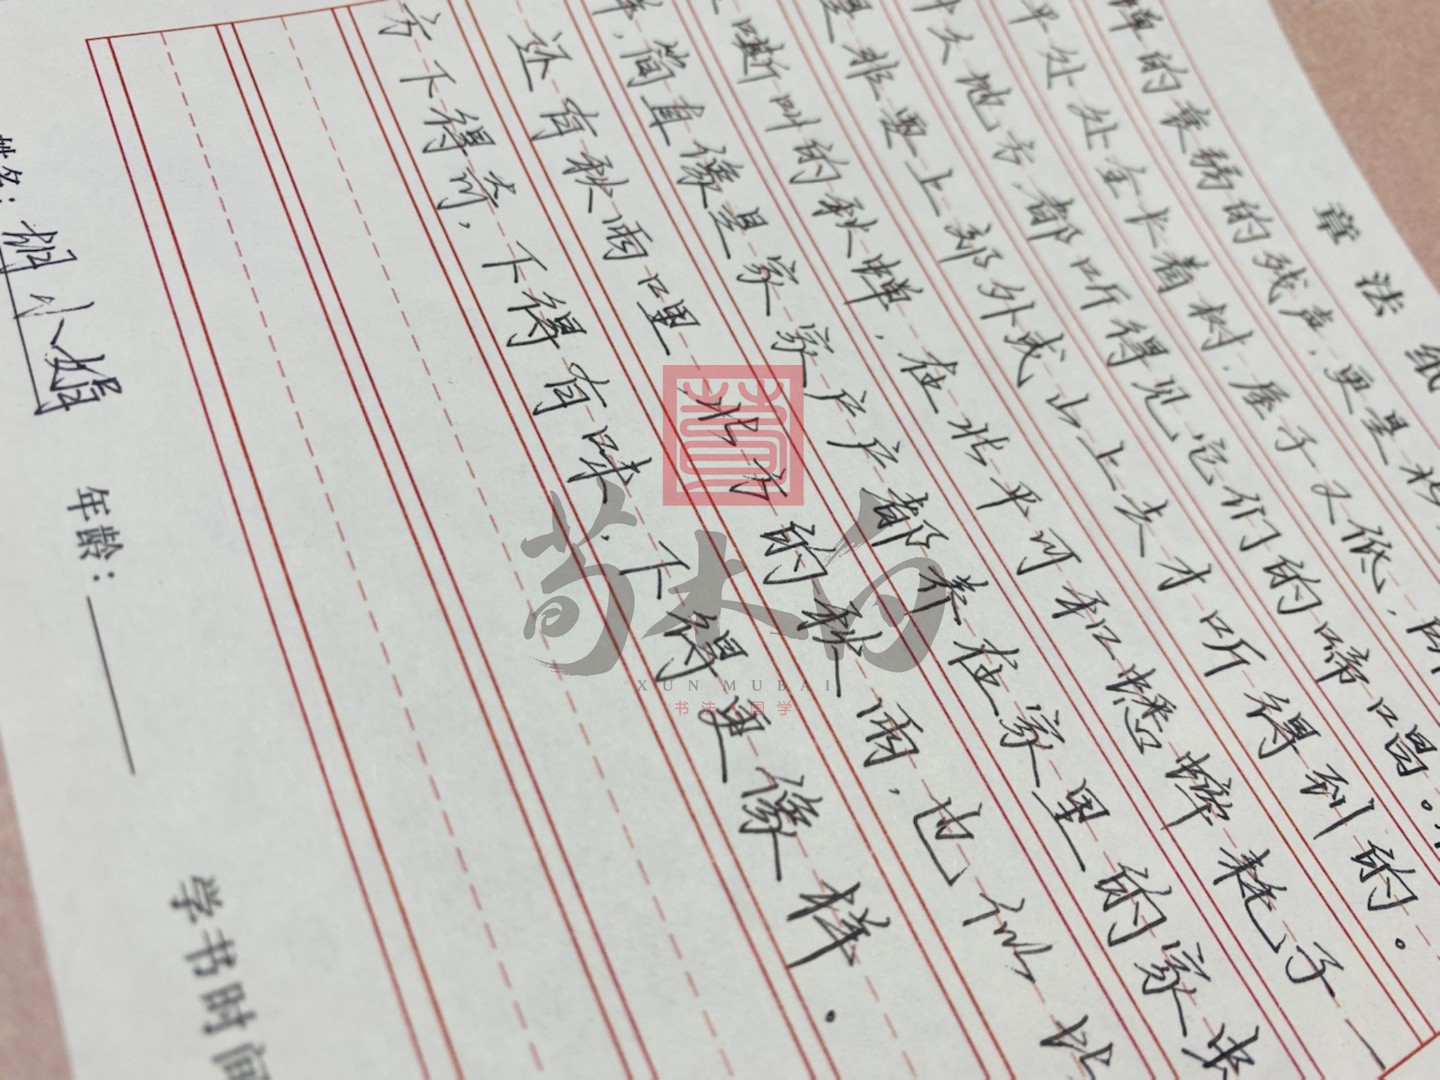 章法纸
蝉的衰弱的残声，更是
平处处全长着树，屋子又低，
什么地方，都听得见它们的啼唱。
是非要上郊外或山上去才听得到的。
嘶叫的秋蝉，在北平可和蟋蟀耗子一
样，简直像是家家户户都养在家里的家虫
还有秋雨哩，北方的秋雨，也似
方下得奇，下得有味，下得更像样。
姓名：
年龄：
学书时间
荀木白
XUN MUBAI
书法 国学